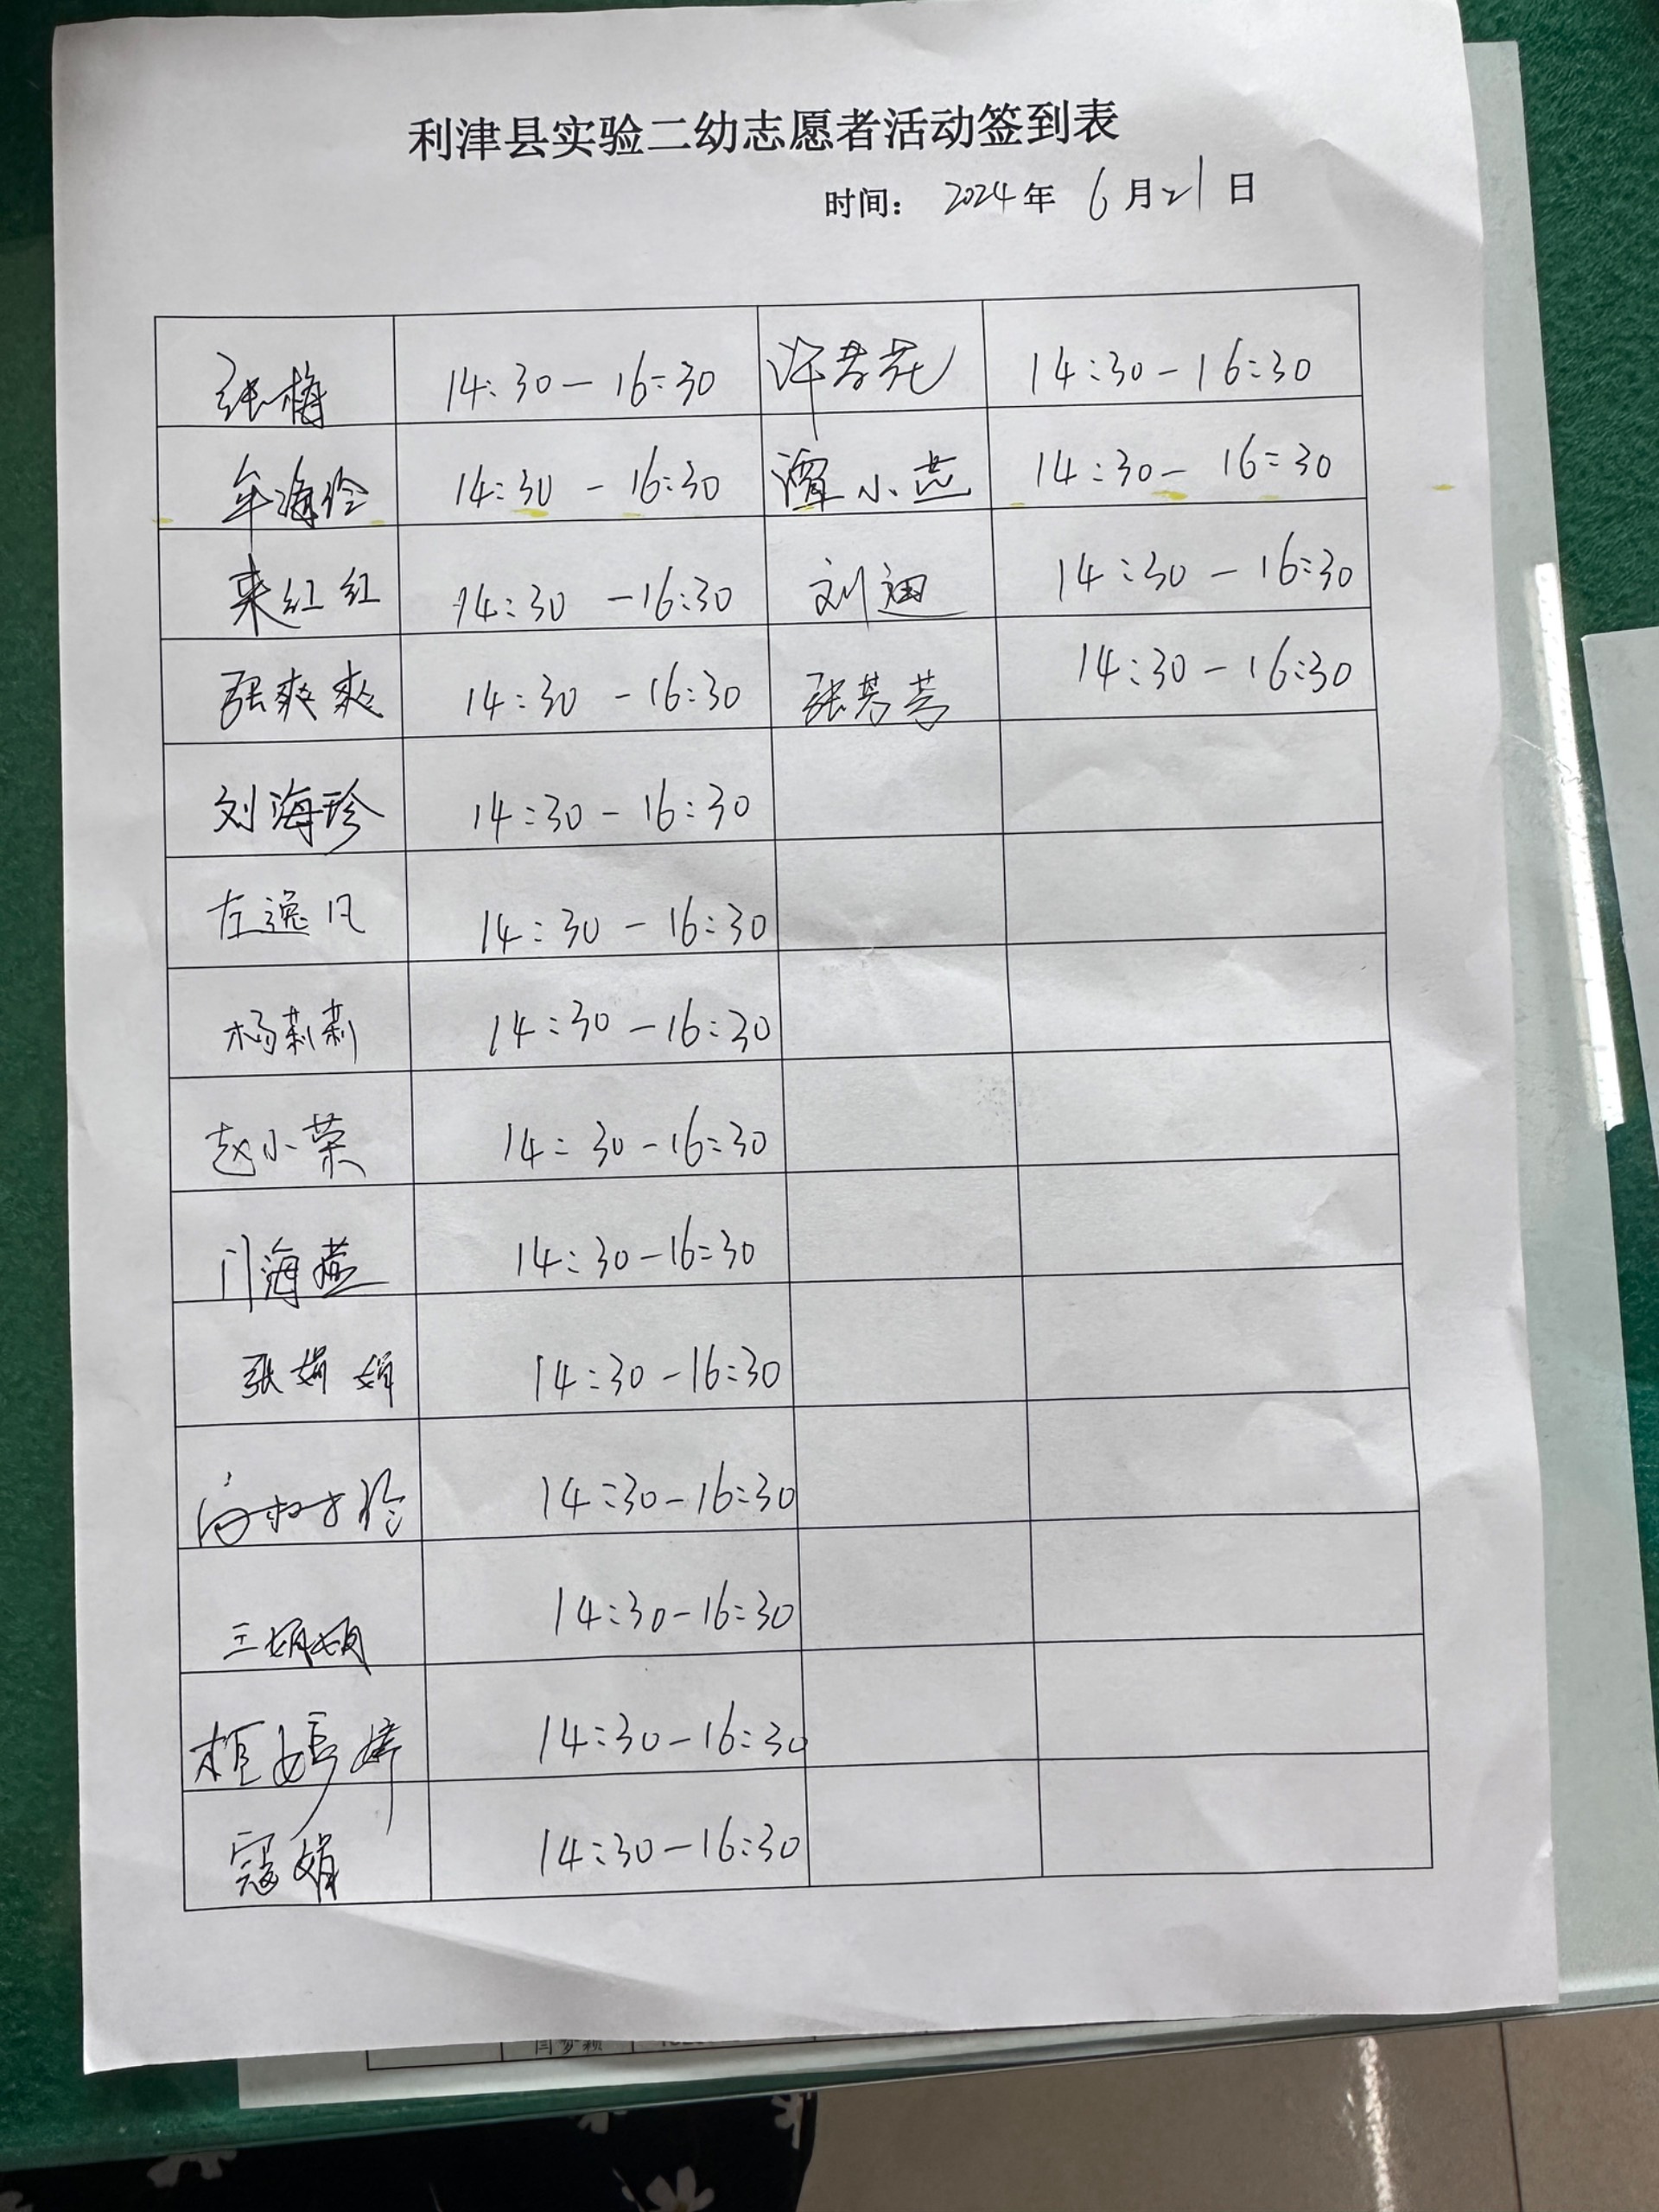 利津县实验二幼志愿者活动签到表
时间： 2024年 6月21日
张梅 14:30-16:30 许芳花 14:30-16:30
牟海玲 14:30-16:30 谭小燕 14:30-16:30
来红红 14:30-16:30 刘迪 14:30-16:30
张爽爽 14:30-16:30 张芳芳 14:30-16:30
刘海珍 14:30-16:30
左逸凡 14:30-16:30
杨莉莉 14:30-16:30
赵小荣 14:30-16:30
门海燕 14:30-16:30
张娟娟 14:30-16:30
14:30-16:30
王娟娟 14:30-16:30
14:30-16:30
寇娟 14:30-16:30
闫梦颖